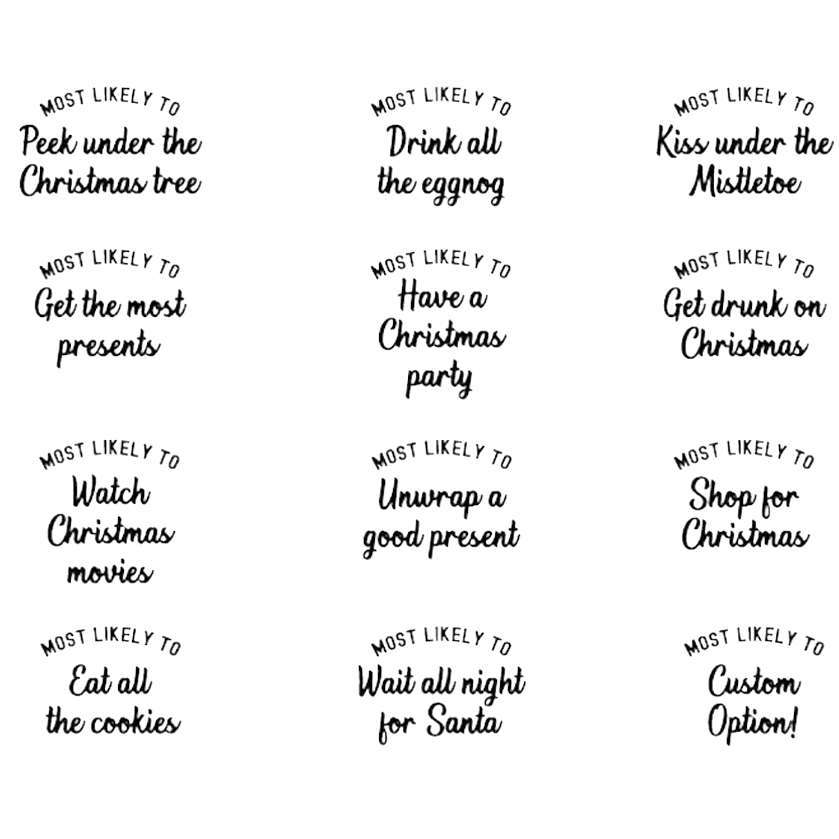 MOST LIKELY TO
Peek under the
Christmas tree
MOST LIKELY TO
Drink all
the eggnog
MOST LIKELY TO
Kiss under the
Mistletoe
MOST LIKELY TO
Get the most
presents
MOST LIKELY TO
Have a
Christmas
party
MOST LIKELY TO
Get drunk on
Christmas
MOST LIKELY TO
Watch
Christmas
movies
MOST LIKELY TO
Unwrap a
good present
MOST LIKELY TO
Shop for
Christmas
MOST LIKELY TO
Eat all
the cookies
MOST LIKELY TO
Wait all night
for Santa
MOST LIKELY TO
Custom
Option!